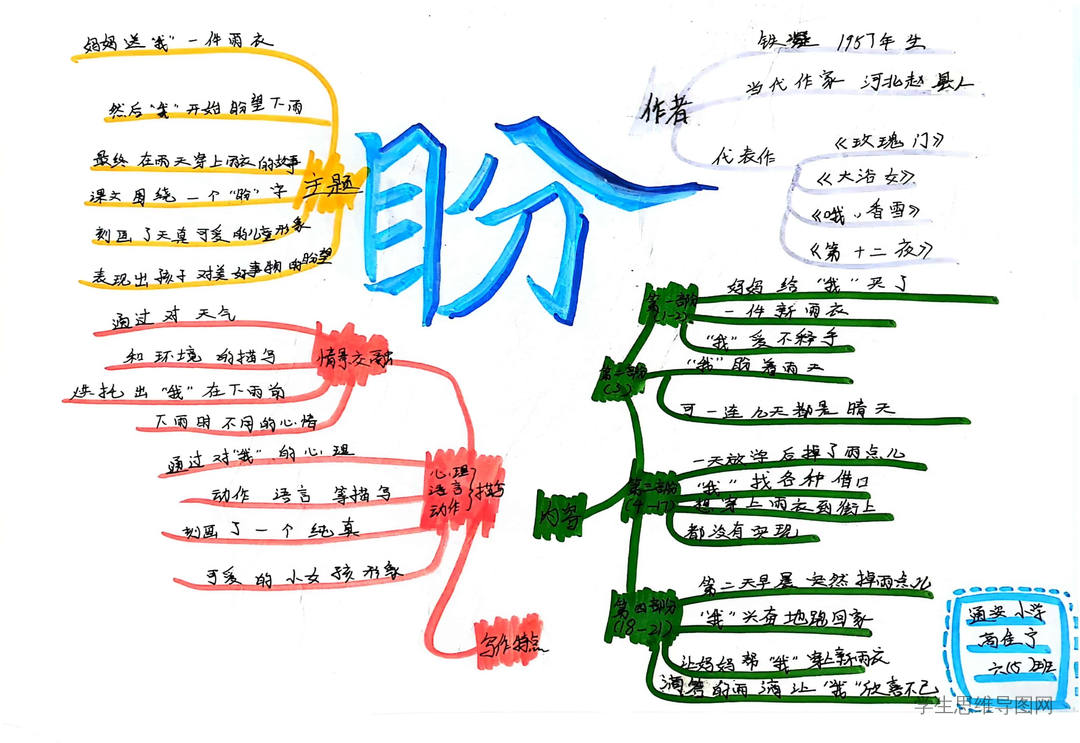 盼
主题
妈妈送“我”一件雨衣
然后“我”开始盼望下雨
最终在雨天穿上雨衣的故事
课文围绕一个“盼”字
刻画了天真可爱的儿童形象
表现出孩子对美好事物的盼望
作者
铁凝 1957年生
当代作家 河北赵县人
代表作
《玫瑰门》
《大浴女》
《哦,香雪》
《第十二夜》
内容
第一部分
(1-2)
妈妈给“我”买了
一件新雨衣
“我”爱不释手
第二部分
(3)
“我”盼着雨天
可一连几天都是晴天
第三部分
(4-17)
一天放学后掉了雨点儿
“我”找各种借口
想穿上雨衣到街上
都没有实现
第四部分
(18-21)
第二天早晨突然掉雨点儿
“我”兴奋地跑回家
让妈妈帮“我”穿上新雨衣
滴答的雨滴让“我”欣喜不已
写作特点
情景交融
通过对天气
和环境的描写
烘托出“我”在下雨前
下雨时不同的心情
心理
语言
动作
描写
通过对“我”的心理
动作 语言 等描写
刻画了一个纯真
可爱的小女孩形象
通安小学
高佳宁
六(5)班
学生思维导图网